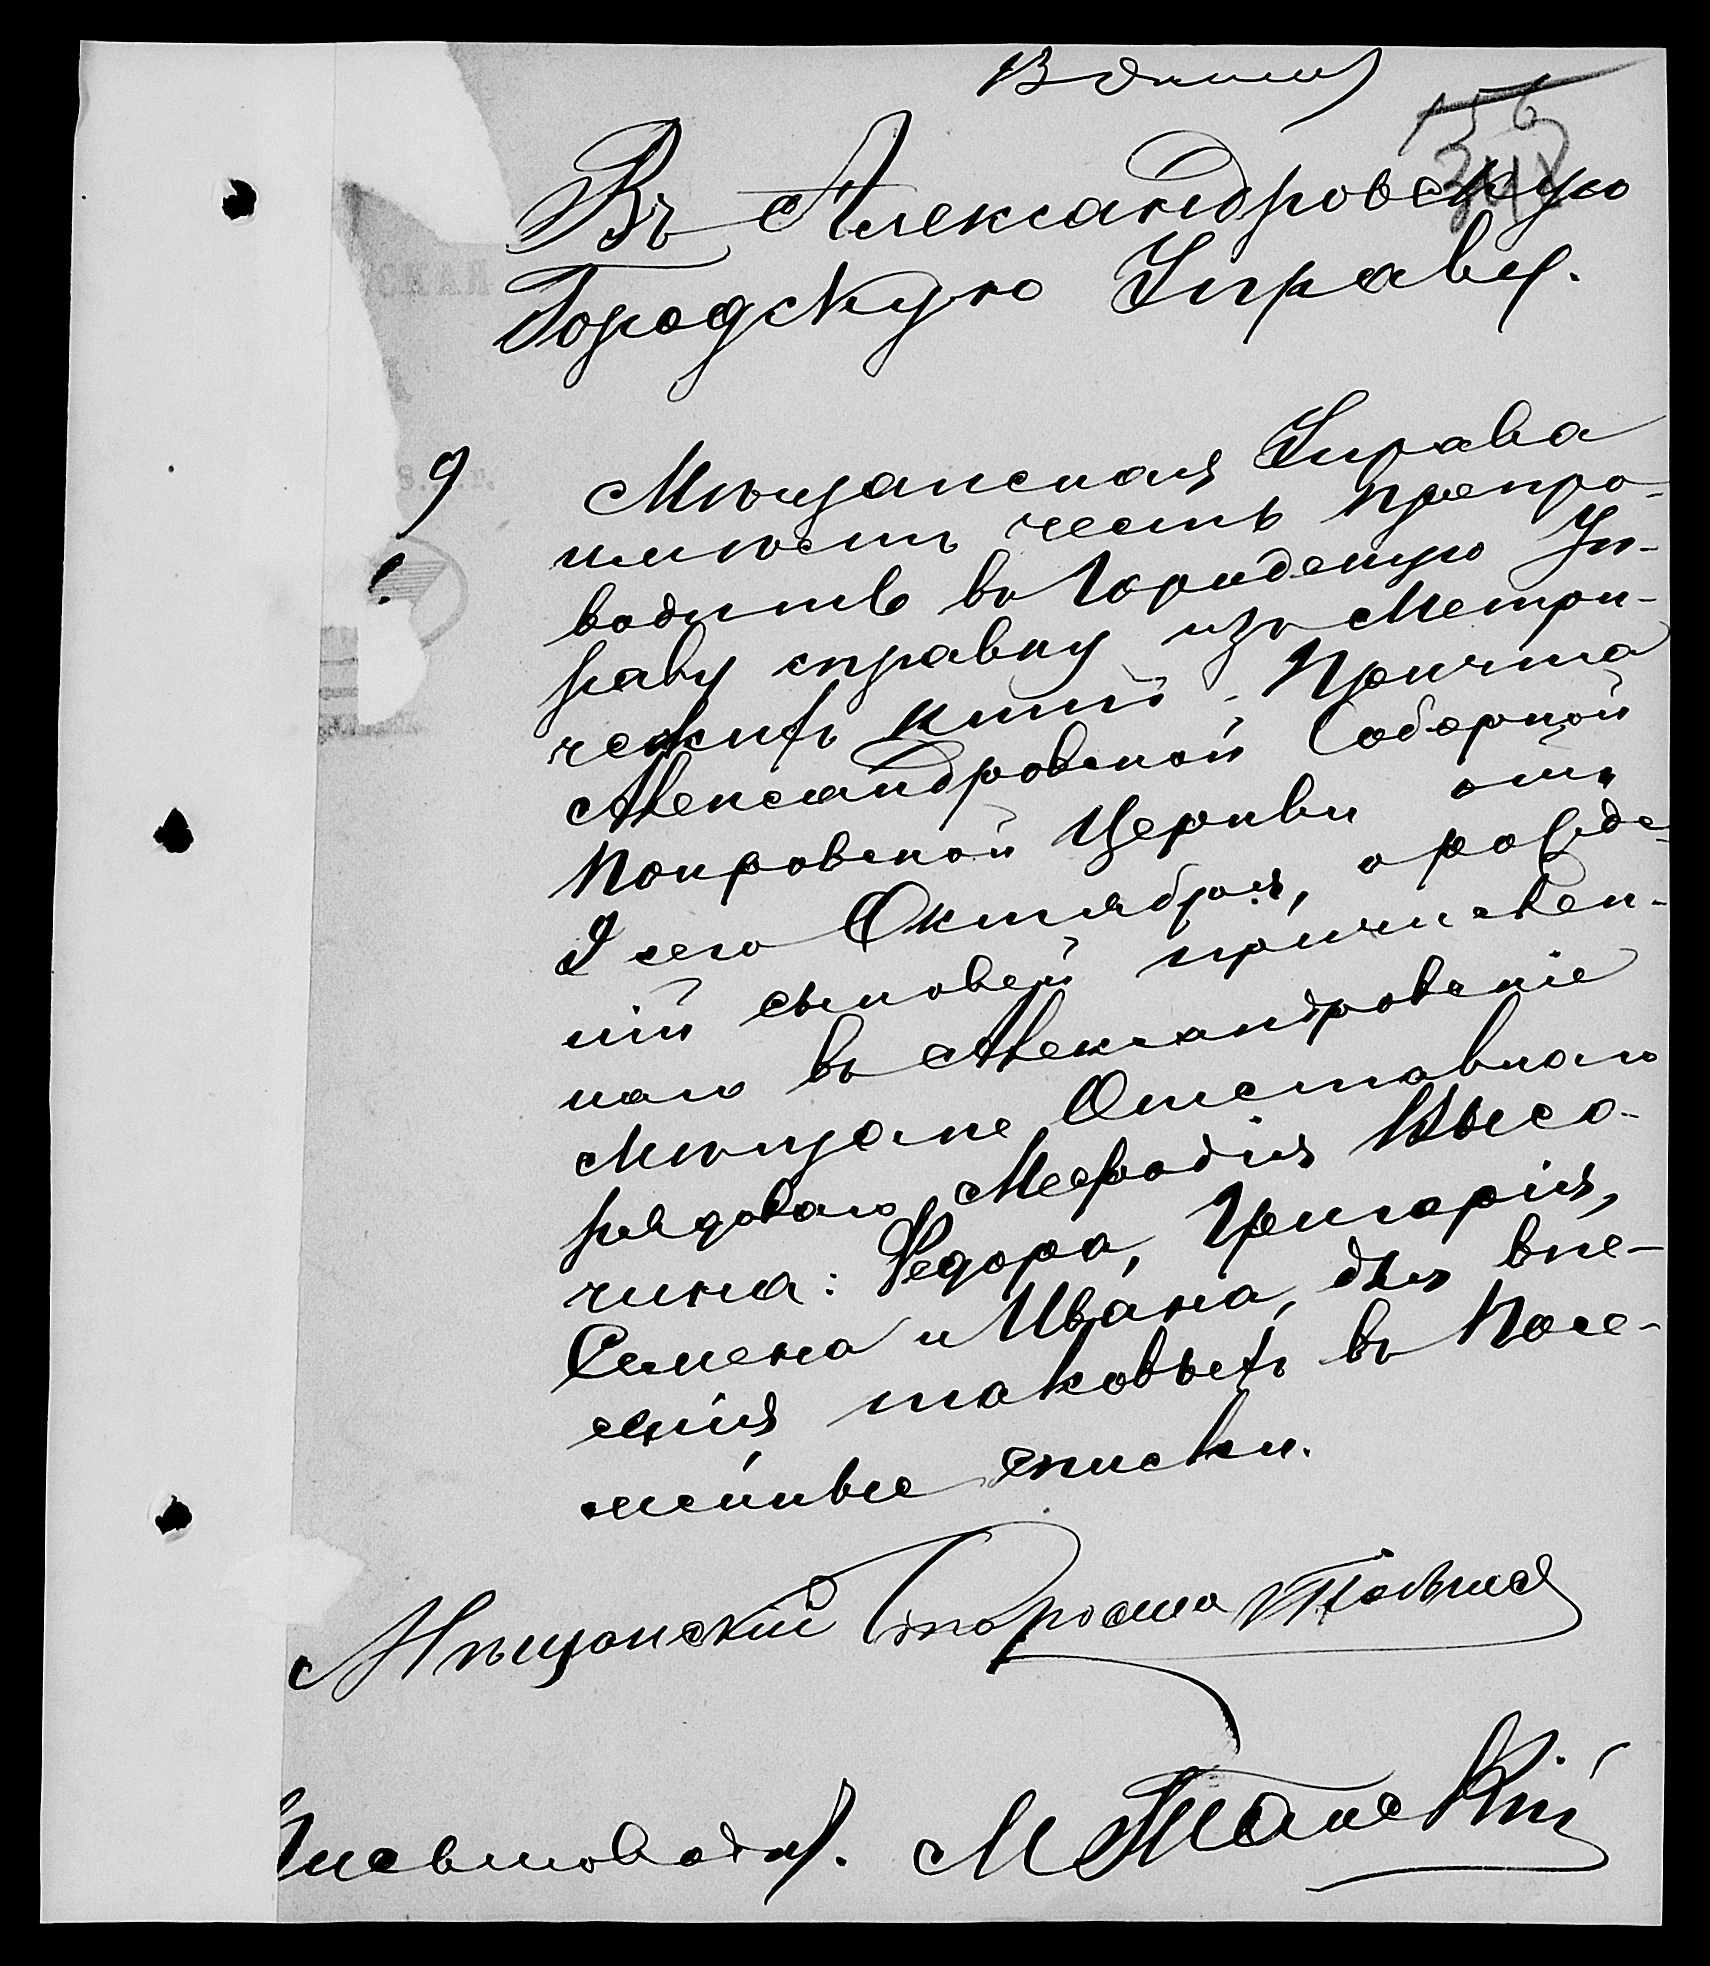 156
Въ Александровскую
Городскую Управу.
Мѣщанская Управа
имѣетъ честь препро-
водить въ Городскую Уп-
раву справку изъ Метри-
ческихъ книгъ Причта
Александровской Соборной
Покровской Церкви отъ
9 сего Октября, о рожде-
ніи сыновей причислен-
наго въ Александровскіе
Мѣщане Отставнаго
рядоваго Мефодія Высо-
чина: Федора, Григорія,
Семена и Ивана, для вне-
сенія таковыхъ въ Посе-
мейные списки.
Мѣщанскій Староста
Письмоводит.